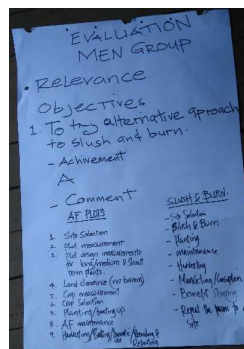 EVALUATION
MEN GROUP
• Relevance
Objectives
1. To try alternative aproach
to slush and burn.
- Achivement
A
- Comment
AF PLOTS
1. Site Selection
2. Plot measurement
3. Plot design measurements
for long/medium & short
term plants.
4. Land clearance (no burns)
5. Crop measurement
6. Crop Selection
7. Planting/beating up
8. AF maintenance
9. Harvesting/
Reporting
SLUSH & BURN.
- Site Selection
- Slush & Burn
- Planting
- maintenance
- Harvesting
- Marketing/
- Benefit Sharing
- Repeat the
Site